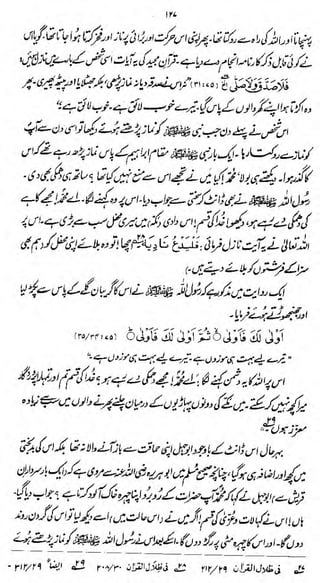 ۱۴۷
پہنچاتا اور اللہ کی راہ سے روکتا تھا۔ پھر اپنی اس حرکت اور برائی پر ناز اور فخر کرتا ہوا جاتا تھا۔ گویا اس
نے کوئی قابل ذکر کارنامہ انجام دے دیا ہے۔ قرآن مجید کی یہ آیات اسی شخص کے بارے میں نازل ہوئیں:
فَلَا صَدَّقَ وَلَا صَلّٰى (۳۱:۷۵) "نہ اس نے صدقہ دیا، نہ نماز پڑھی، بلکہ جھٹلایا اور پیٹھ پھیری، پھر
وہ اکڑتا ہوا اپنے گھر والوں کے پاس گیا۔ تیرے خوب لائق ہے۔ خوب لائق ہے۔"
اس شخص نے پہلے دن جب نبی ﷺ کو نماز پڑھتے ہوئے دیکھا تو اسی دن سے آپ کو
نماز سے روکتا رہا۔ ایک بار نبی ﷺ مقام ابراہیم کے پاس نماز پڑھ رہے تھے کہ اس
کا گذر ہوا۔ دیکھتے ہی بولا: محمد! کیا میں نے تجھے اس سے منع نہیں کیا تھا؟ ساتھ ہی دھمکی بھی دی۔
رسول اللہ ﷺ نے بھی ڈانٹ کر سختی سے جواب دیا۔ اس پر وہ کہنے لگا: اے محمد! مجھے کاہے
کی دھمکی دے رہے ہو، دیکھو! خدا کی قسم! اس وادی (مکہ) میں میری محفل سب سے بڑی ہے۔ اس پر
اللہ تعالیٰ نے یہ آیت نازل فرمائی: فَلْيَدْعُ نَادِيَهٗ اچھا! تو وہ بلائے اپنی محفل کو (ہم بھی
سزا کے فرشتوں کو بلائے دیتے ہیں)
ایک روایت میں مذکور ہے کہ رسول اللہ ﷺ نے اس کا گریبان گلے کے پاس سے پکڑ لیا
اور جھنجھوڑتے ہوئے فرمایا۔
اَوْلٰى لَكَ فَاَوْلٰى ۝ ثُمَّ اَوْلٰى لَكَ فَاَوْلٰى ۝ (۳۵/۳۴:۷۵)
"تیرے لیے بہت ہی موزوں ہے۔ تیرے لیے بہت ہی موزوں ہے۔"
اس پر اللہ کا یہ دشمن کہنے لگا: اے محمد! مجھے دھمکی دے رہے ہو؟ خدا کی قسم تم اور تمہارا پروردگار
میرا کچھ نہیں کر سکتے۔ میں مکے کی دونوں پہاڑیوں کے درمیان چلنے پھرنے والوں میں سب سے زیادہ
معزز ہوں۔
بہرحال اس ڈانٹ کے باوجود ابوجہل اپنی حماقت سے باز آنے والا نہ تھا بلکہ اس کی بدبختی
میں کچھ اور اضافہ ہی ہو گیا۔ چنانچہ صحیح مسلم میں ابو ہریرہ رضی اللہ عنہ سے مروی ہے کہ (ایک بار سرداران
قریش سے) ابوجہل نے کہا کہ محمد آپ حضرات کے رُو برو اپنا چہرہ خاک آلود کرتا ہے؟ جواب دیا گیا۔
ہاں۔ اس نے کہا لات و عزیٰ کی قسم! اگر میں نے (اس حالت میں) اسے دیکھ لیا تو اس کی گردن روند
دوں گا۔ اور اس کا چہرہ مٹی پر رگڑ دوں گا۔ اس کے بعد اس نے رسول اللہ ﷺ کو نماز پڑھتے ہوئے
فی ظلال القرآن ۲۹/۲۱۲ فی ظلال القرآن ۳۰/۲۰۸ ایضاً ۲۹/۳۱۲